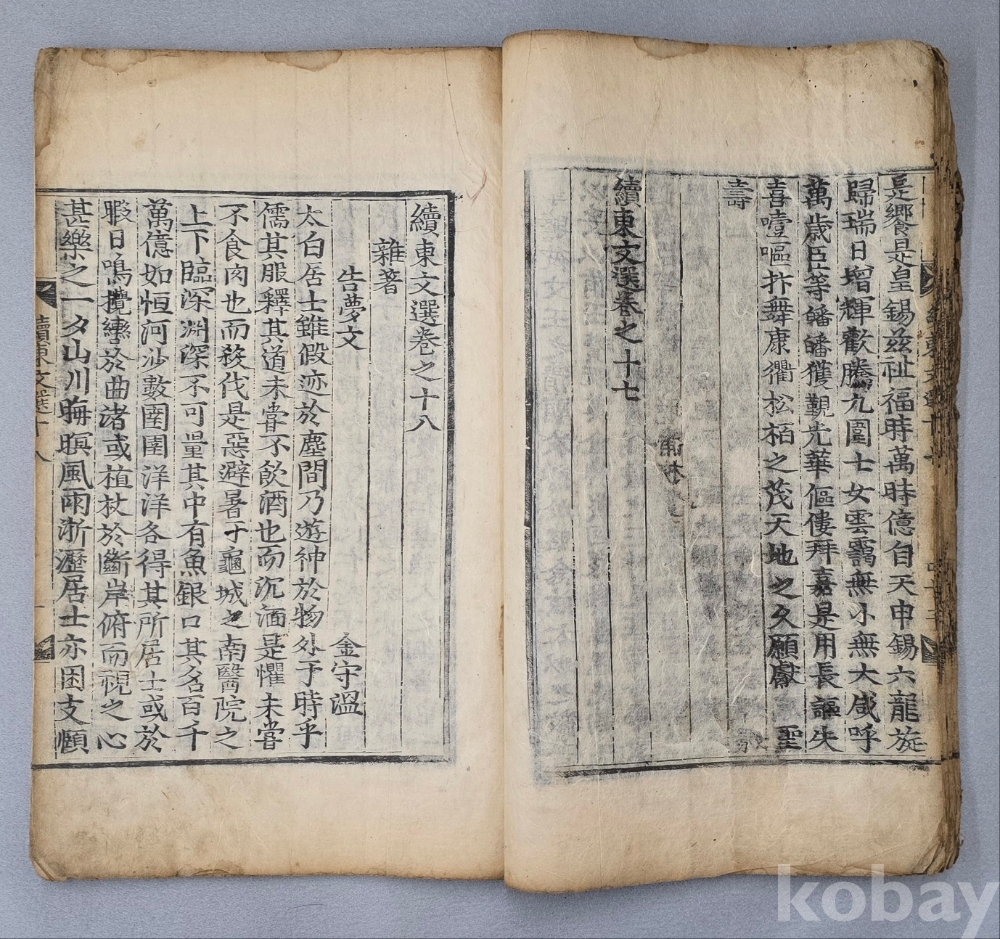 是饗是皇錫茲祉福時萬時億自天申錫六龍旋
歸瑞日增輝歡騰九圍士女雲靄無小無大咸呼
萬歲臣等皤皤獲覩光華傴僂拜嘉是用長謳失
喜噎嘔抃舞康衢松栢之茂天地之久願獻 聖
壽
續東文選卷之十七
續東文選卷之十八
雜著
告夢文 金守溫
太白居士雖假迹於塵間乃遊神於物外于時乎
儒其服釋其道未嘗不飮酒也而沉湎是懼未嘗
不食肉也而殺伐是惡避暑于龜城之南醫院之
上下臨深淵深不可量其中有魚銀口其名百千
萬億如恒河沙數圉圉洋洋各得其所居士或於
暇日鳴攬轡於曲渚或植杖於斷岸俯而視之心
甚樂之一夕山川晦暝風雨淅瀝居士亦困支頤
續東文選十八
kobay